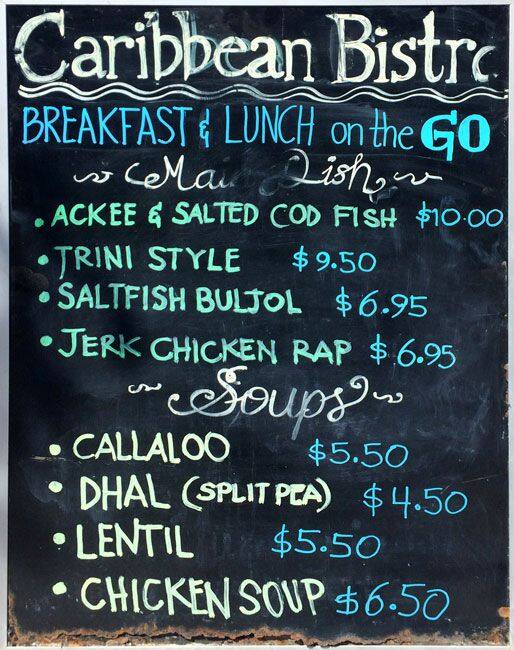 Caribbean Bistro
BREAKFAST & LUNCH on the GO
~ Main Dish ~
• ACKEE & SALTED COD FISH $10.00
• TRINI STYLE $9.50
• SALTFISH BULJOL $6.95
• JERK CHICKEN RAP $6.95
~ Soups ~
• CALLALOO $5.50
• DHAL (SPLIT PEA) $4.50
• LENTIL $5.50
• CHICKEN SOUP $6.50